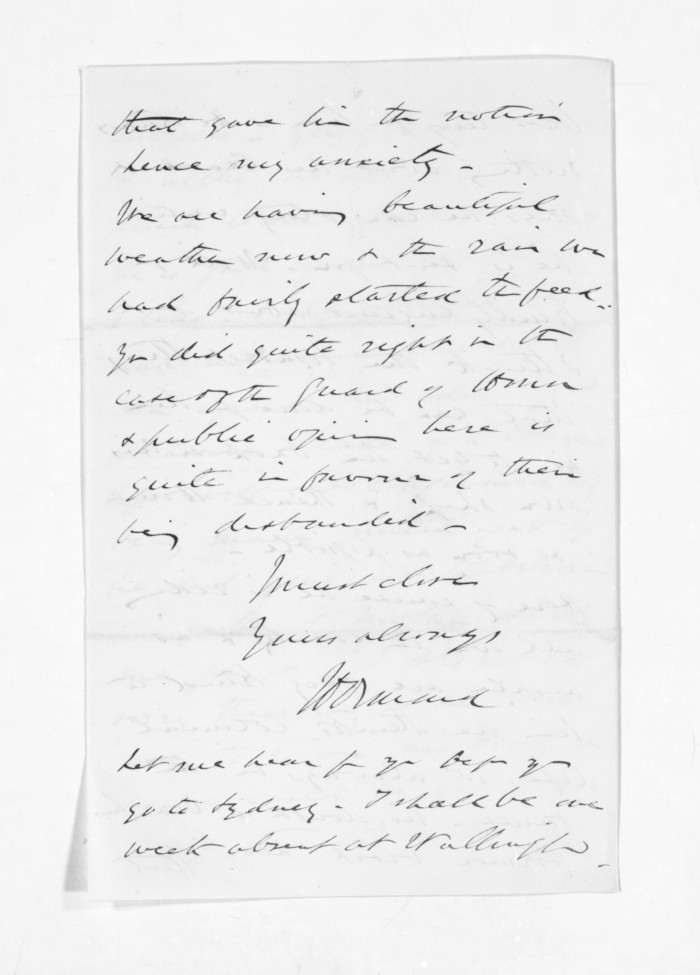 that gave him the notion
hence my anxiety -
We are having beautiful
weather now & the rain we
had fairly started the feed.
Yr did quite right in the
case of the Guard of Honor
& public opin here is
quite in favour of their
being disbanded -
I must close
Yours always
Let me hear fr yr befr yr
go to Sydney - I shall be one
week absent at Wallingtn -